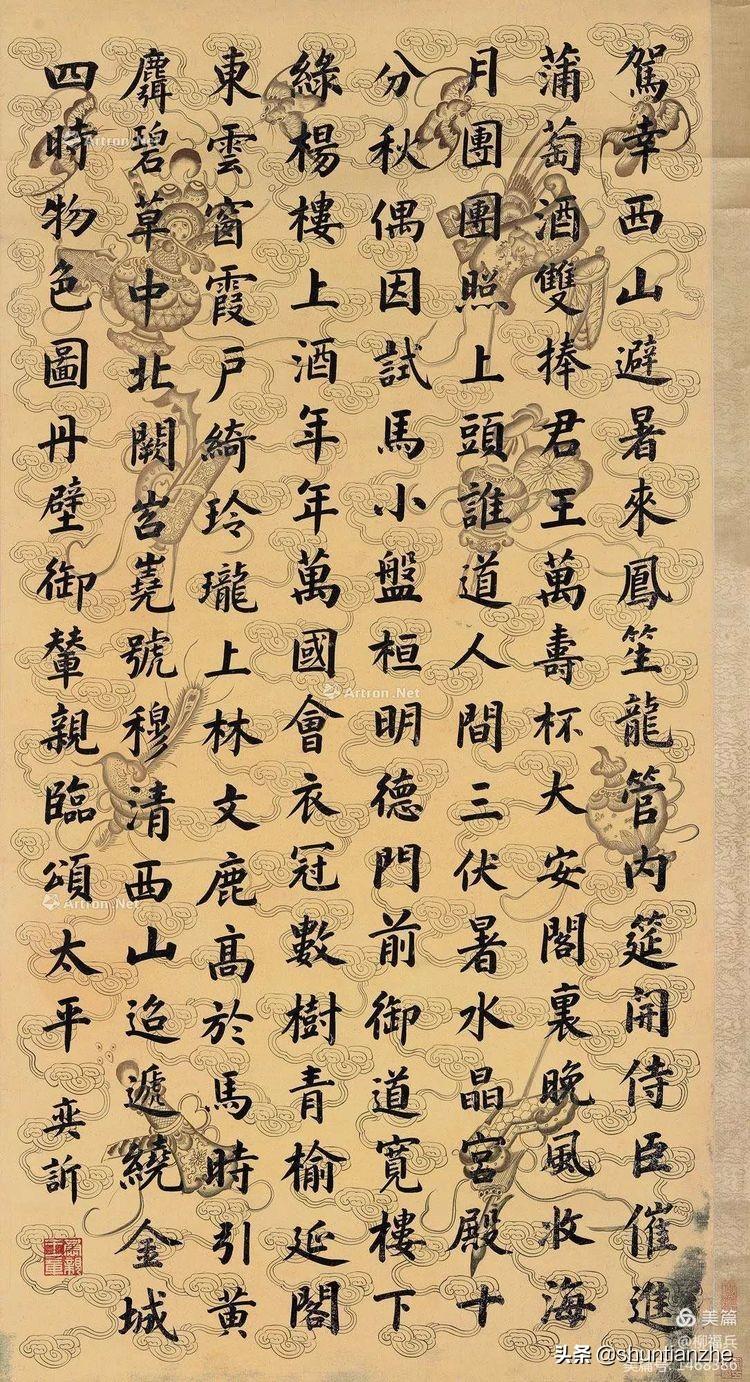 駕幸西山避暑來鳳笙龍管內筵開侍臣催進
蒲萄酒雙捧君王萬壽杯大安閣裏晚風收海
月團團照上頭誰道人間三伏暑水晶宮殿十
分秋偶因試馬小盤桓明德門前御道寬樓下
綠楊樓上酒年年萬國會衣冠數樹青榆延閣
東雲窗霞戶綺玲瓏上林文鹿高於馬時引黃
麛碧草中北闕岧嶤號穆清西山迢遞繞金城
四時物色圖丹壁御輦親臨頌太平
奕訢
Artron.Net
Artron.Net
Artron.Net
美篇
@柳福兵
美篇号:1468386
头条 @shuntianzhe